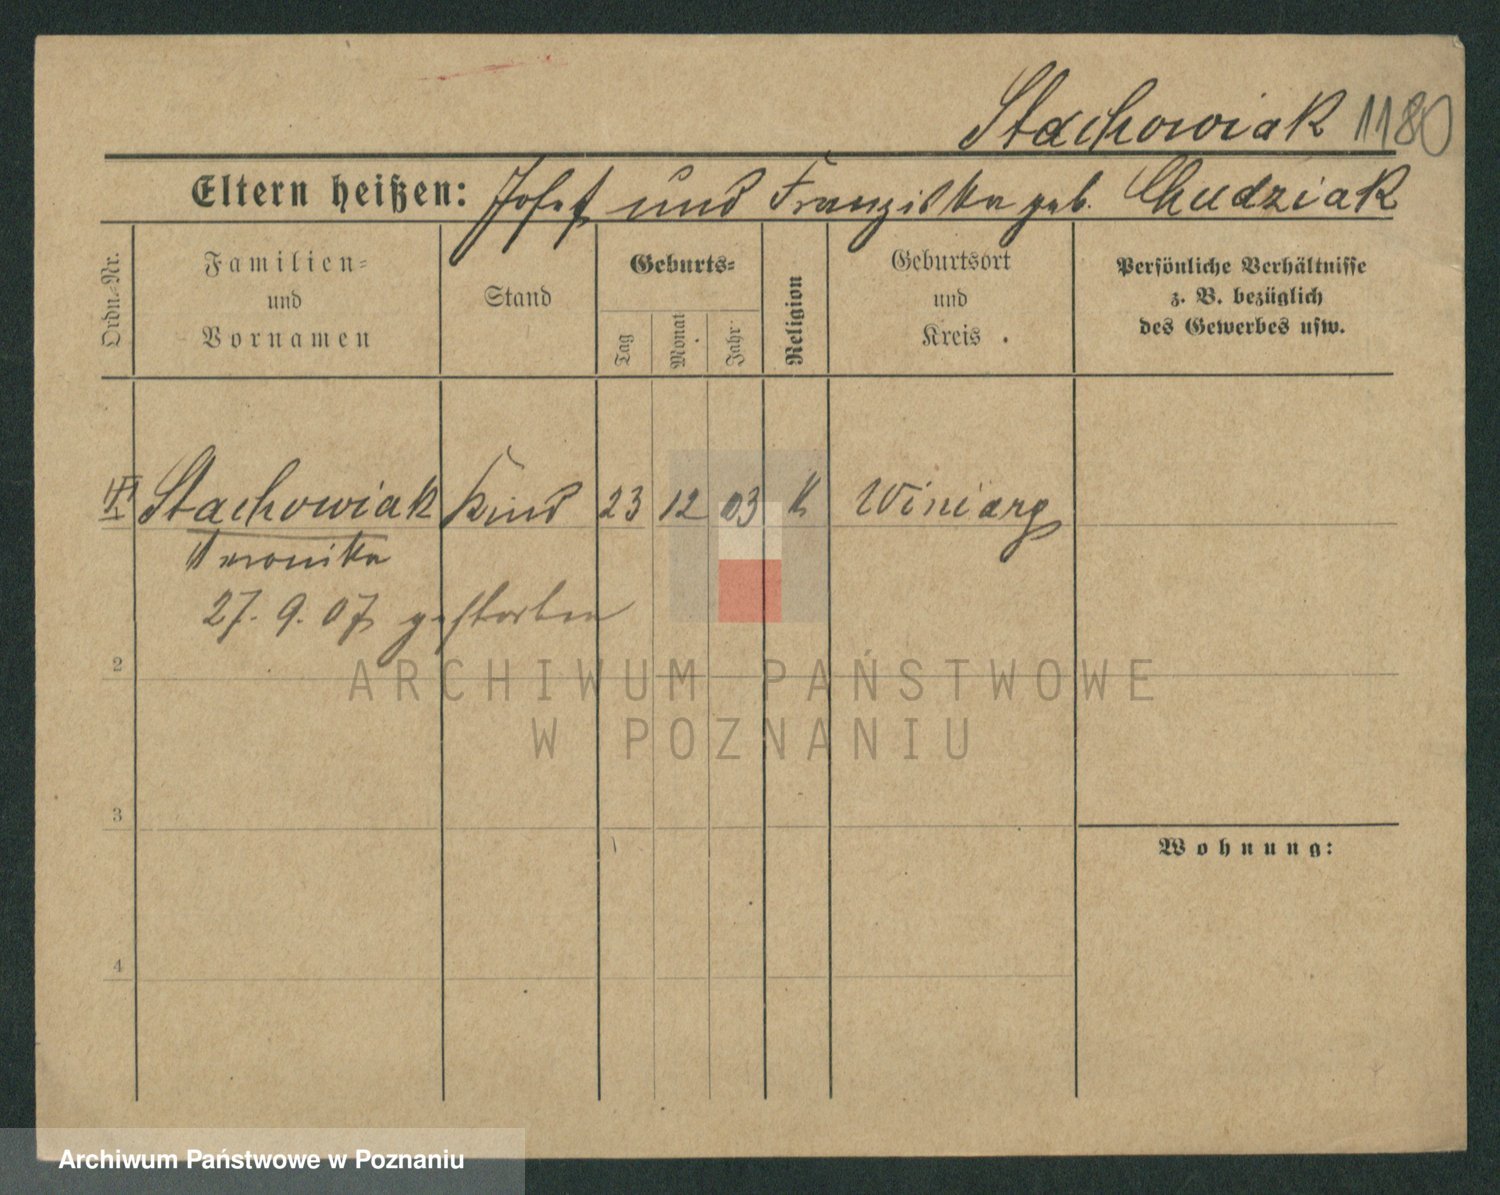 Stachowiak 1180
Eltern heißen: Josef und Franziska geb. Chudziak
Ordn.-Nr.
Familien-
und
Vornamen
Stand
Geburts-
Tag
Monat
Jahr
Religion
Geburtsort
und
Kreis
Persönliche Verhältnisse
z. B. bezüglich
des Gewerbes usw.
Stachowiak Kind 23 12 03 K Winiary
Veronika
27. 9. 07 gestorben
2
3
4
Wohnung:
ARCHIWUM PAŃSTWOWE
W POZNANIU
Archiwum Państwowe w Poznaniu